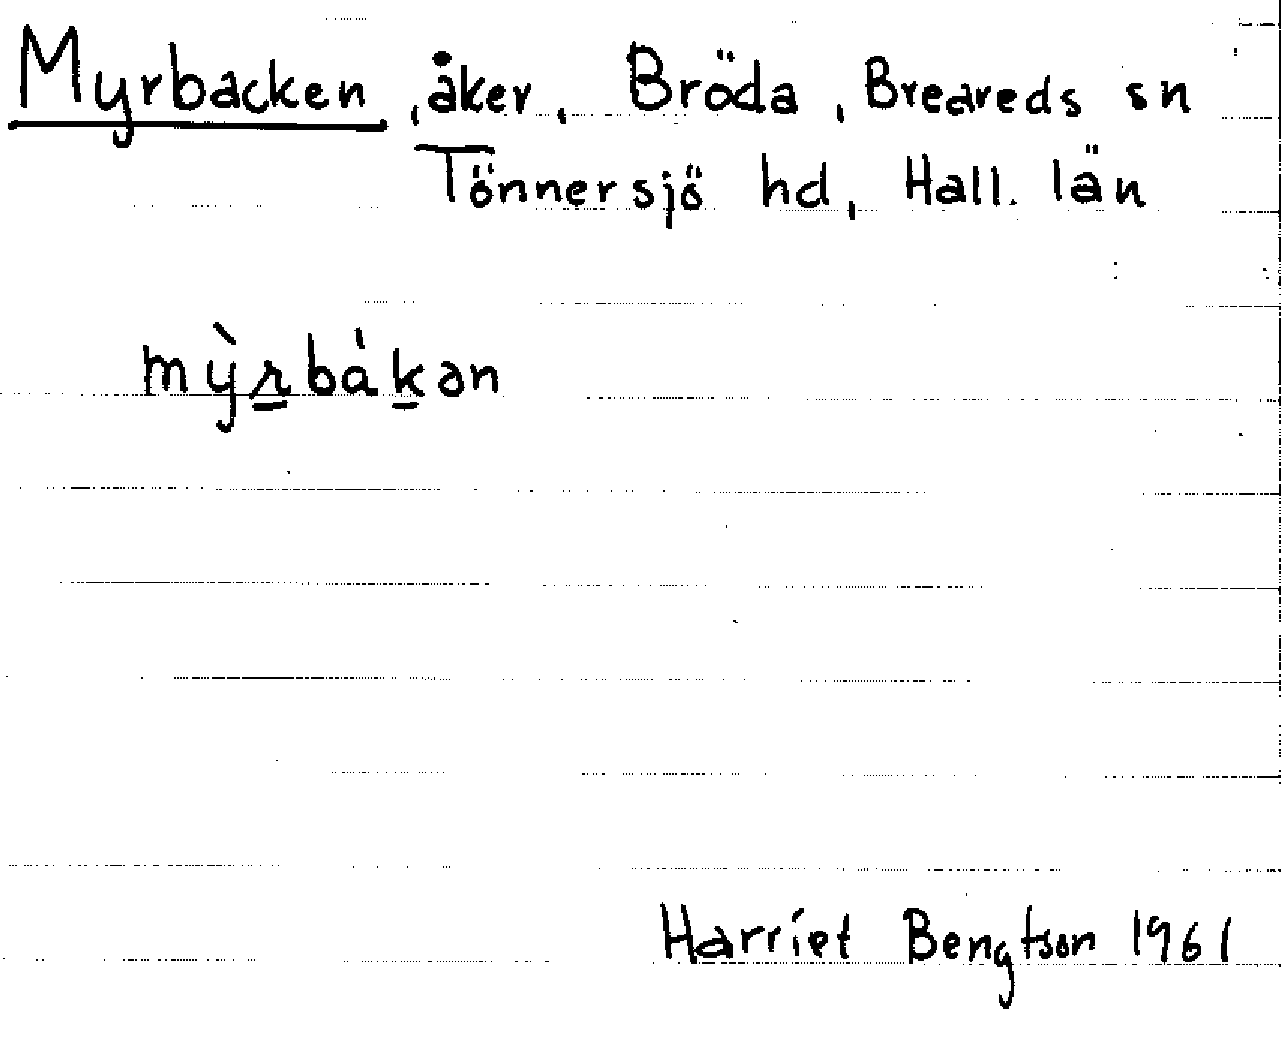 Myrbacken, åker, Bröda, Breareds sn
Tönnersjö hd, Hall. län
mỳrbákən
Harriet Bengtson 1961